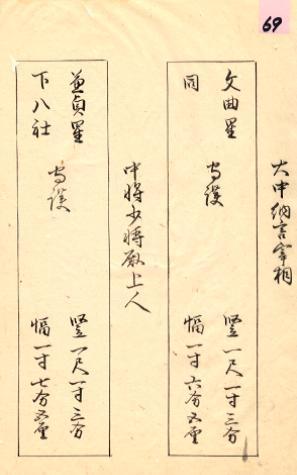 69
大中納言宰相
文曲星
同
守護
竪一尺一寸三分
幅一寸六分五厘
中将少将殿上人
廉貞星
下八社
守護
竪一尺一寸三分
幅一寸七分五厘